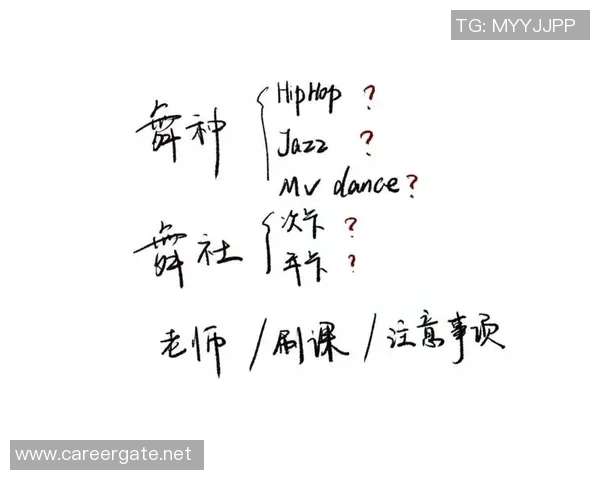 TG: MYYJJPP
舞种
HipHop ?
Jazz ?
MV dance?
舞社
次卡 ?
年卡 ?
老师 / 刷课 / 注意事项
www.careergate.net